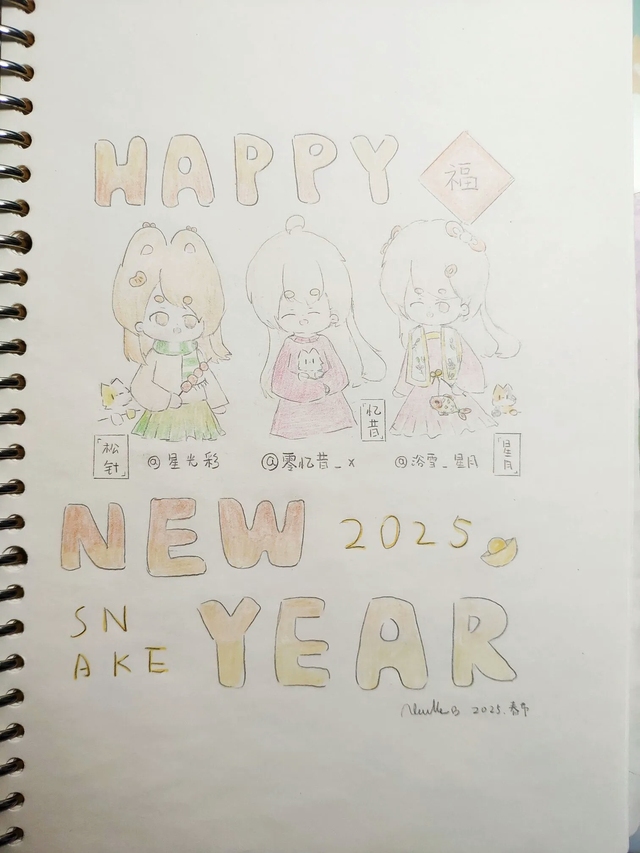 HAPPY
福
「松针」
@星光彩
@零忆昔_x
忆昔
@浴雪_星月
「星月」
NEW 2025
SNAKE YEAR
2025.春节